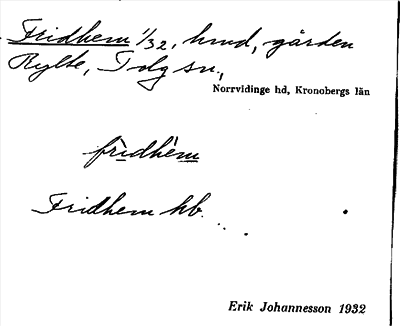 Fridhem 1/32, hmd, gården
Rylte, Tolg sn,
Norrvidinge hd, Kronobergs län
fridhèm
Fridhem hb.
Erik Johannesson 1932